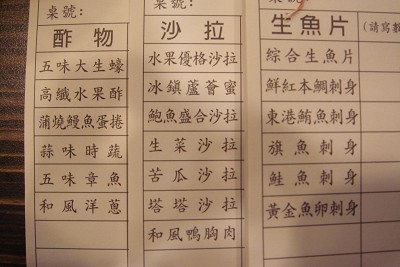 桌號:
酢物
五味大生蠔
高纖水果酢
蒲燒鰻魚蛋捲
蒜味時蔬
五味章魚
和風洋蔥
桌號:
沙拉
水果優格沙拉
冰鎮蘆薈蜜
鮑魚盛合沙拉
生菜沙拉
苦瓜沙拉
塔塔沙拉
和風鴨胸肉
生魚片
(請寫數
綜合生魚片
鮮紅本鯛刺身
東港鮪魚刺身
旗魚刺身
鮭魚刺身
黃金魚卵刺身